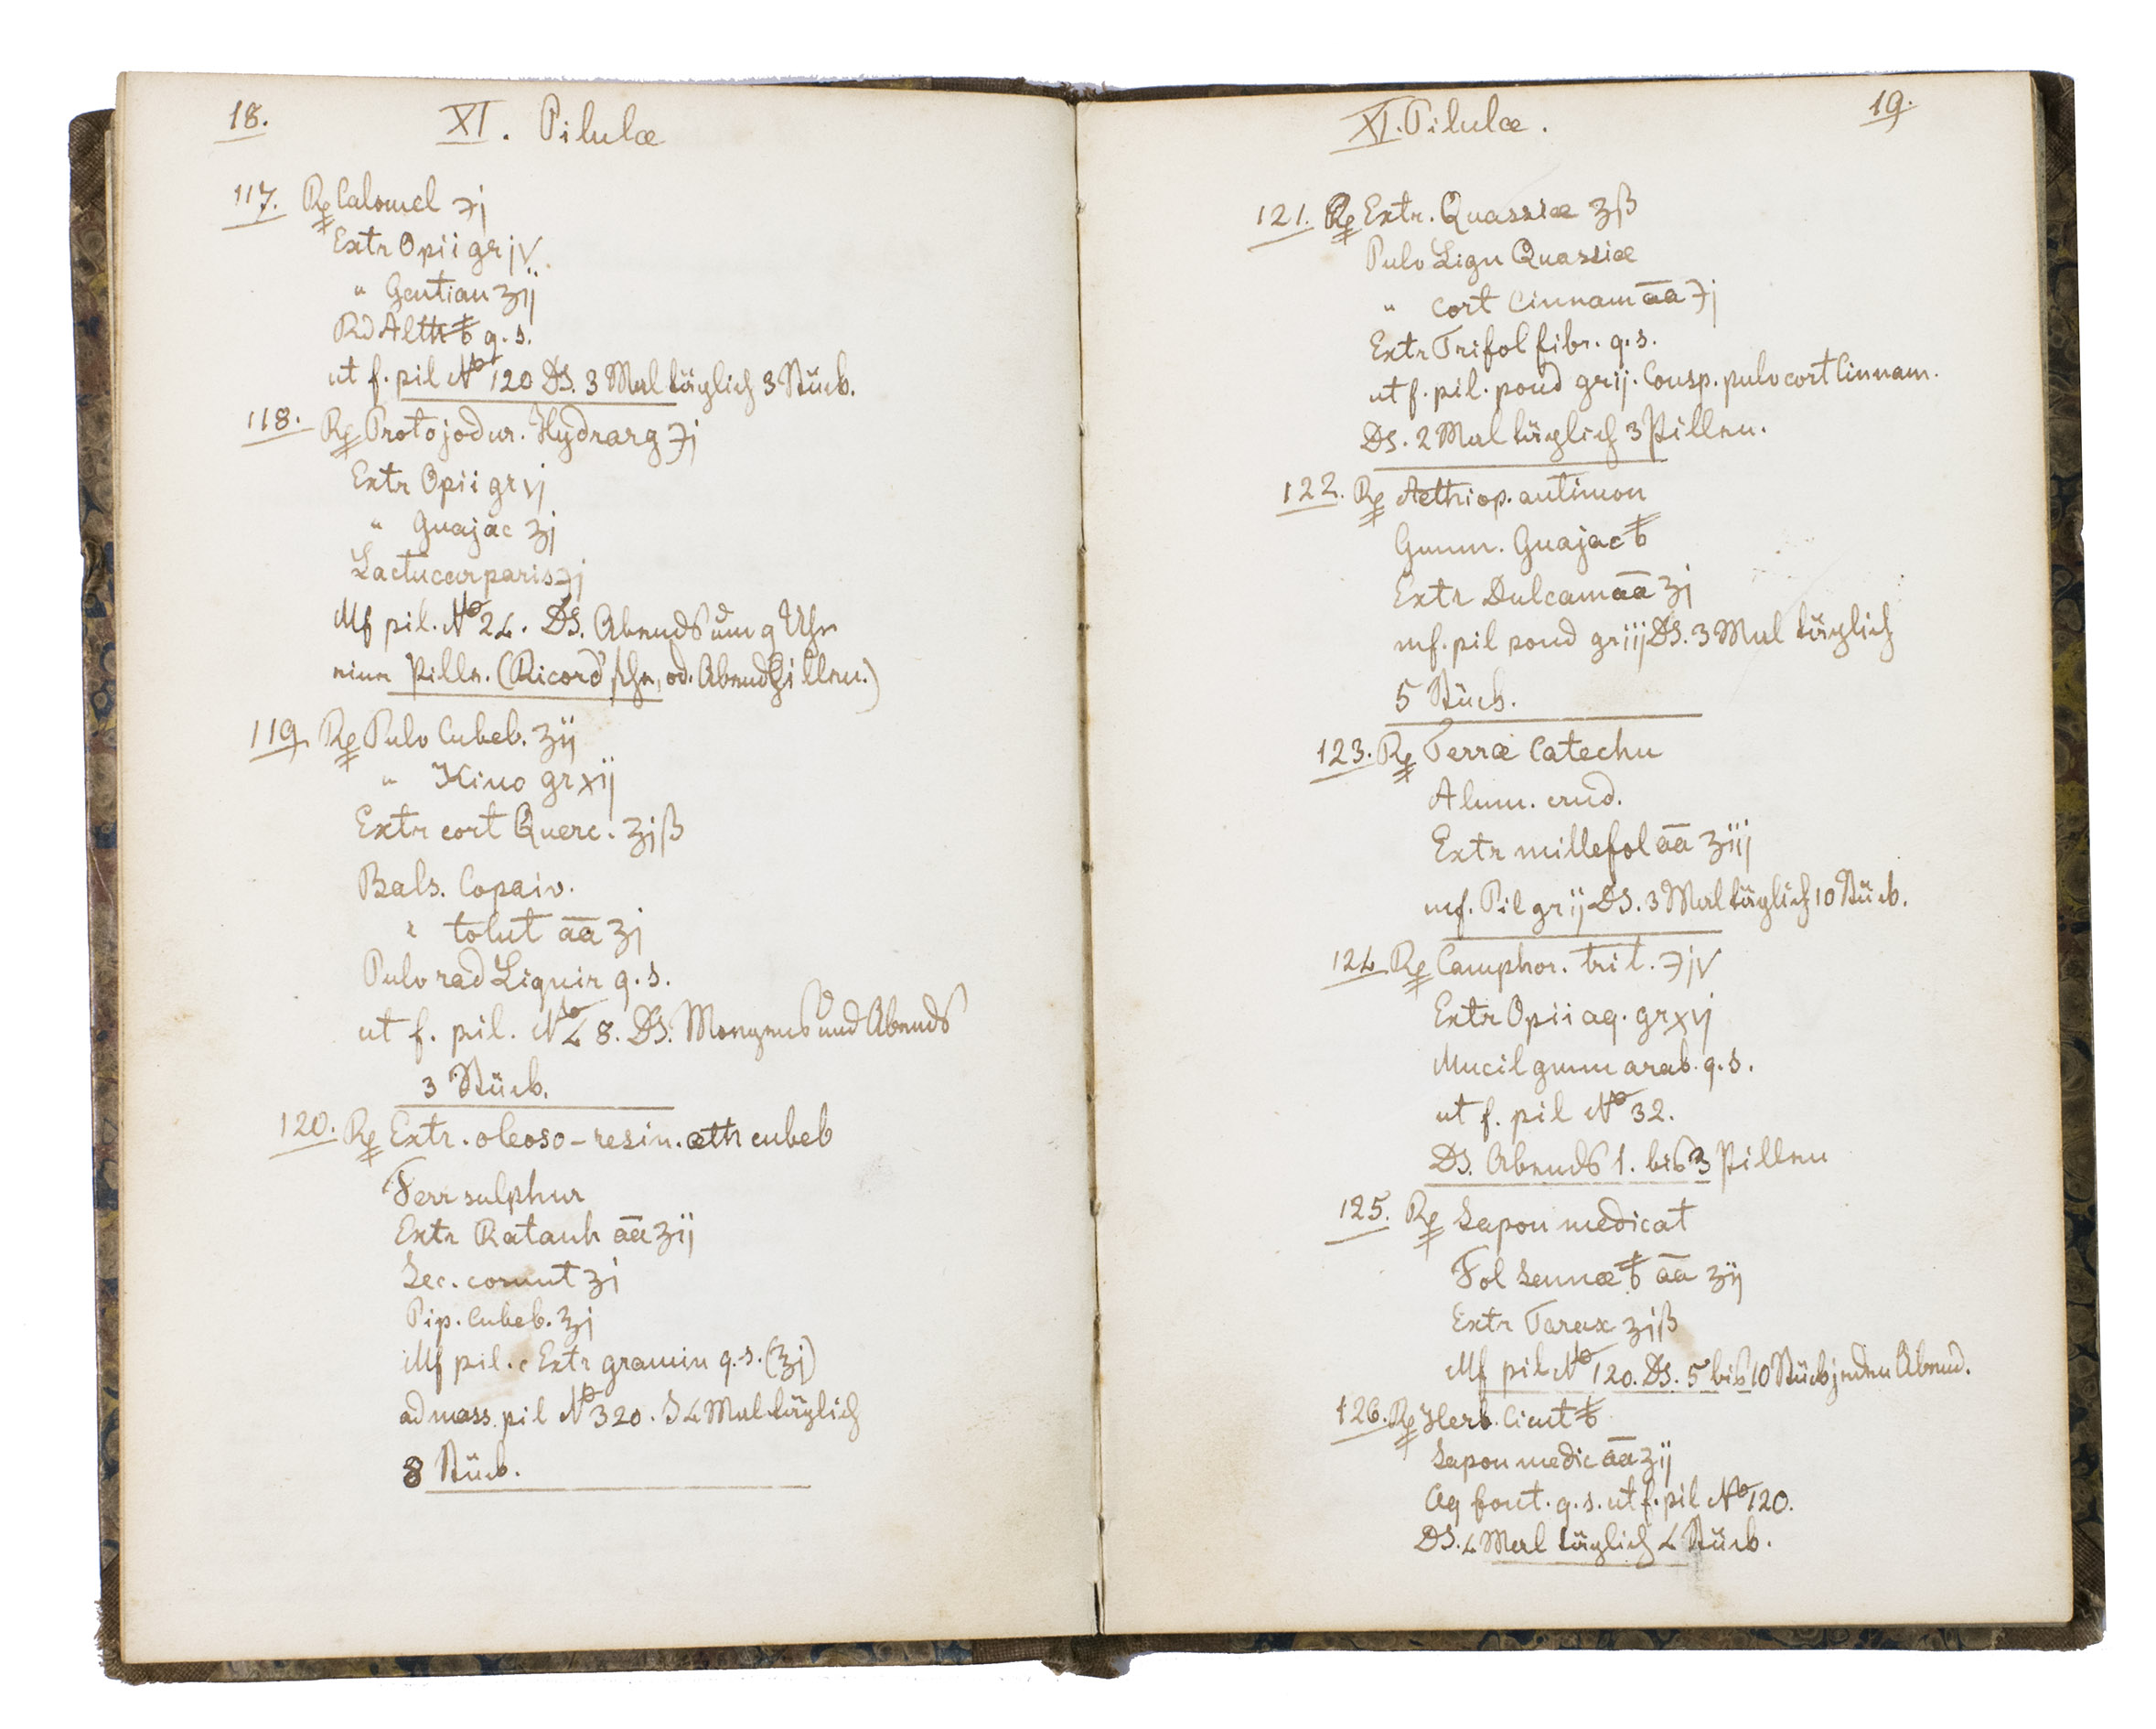 18.
XI. Pilulæ
117. Rp Calomel ℈j
Extr Opii gr jv.
" Gentian ʒij
Rd Alth ꝉb q. s.
ut f. pil No 120 DS. 3 Mal täglich 3 Stück.
118. Rp Protojodur. Hydrarg ℈j
Extr Opii gr vj
" Guajac ʒj
Lactucar paris ℈j
Mf pil. No 24. DS. Abends um 9 Uhr
eine Pille. (Ricord'sche, od. Abendpillen.)
119. Rp Pulv Cubeb. ʒij
" Kino gr xij
Extr cort Querc. ʒjß
Bals. Copaiv.
" tolut āā ʒj
Pulv rad Liquir q. s.
ut f. pil. No 48. DS. Morgens und Abends
3 Stück.
120. Rp Extr. oleoso-resin. æth cubeb
Ferr sulphur
Extr Ratanh āā ʒij
Sec. cornut ʒj
Pip. Cubeb. ʒj
Mf pil. c Extr gramin q. s. (ʒj)
ad mass. pil No 320. S 4 Mal täglich
8 Stück.
XI. Pilulæ.
19.
121. Rp Extr. Quassiæ ʒß
Pulv Lign Quassiæ
" cort Cinnam āā ℈j
Extr Trifol fibr. q. s.
ut f. pil. pond gr ij. Consp. pulv cort Cinnam.
DS. 2 Mal täglich 3 Pillen.
122. Rp Aethiop. antimon
Gumm. Guajac ꝉb
Extr Dulcam āā ʒj
mf. pil pond gr iij DS. 3 Mal täglich
5 Stück.
123. Rp Terræ Catechu
Alum. crud.
Extr millefol āā ʒiij
mf. Pil gr ij DS. 3 Mal täglich 10 Stück.
124. Rp Camphor. trit. ℈jv
Extr Opii aq. gr xvj
Mucil gumm arab. q. s.
ut f. pil No 32.
DS. Abends 1. bis 3 Pillen
125. Rp Sapon medicat
Fol Sennæ ꝉb āā ʒij
Extr Tarax ʒjß
Mf pil No 120. DS. 5 bis 10 Stück jeden Abend.
126. Rp Herb. Cicut ꝉb
Sapon medic āā ʒij
Aq font. q. s. ut f. pil No 120.
DS. 4 Mal täglich 4 Stück.